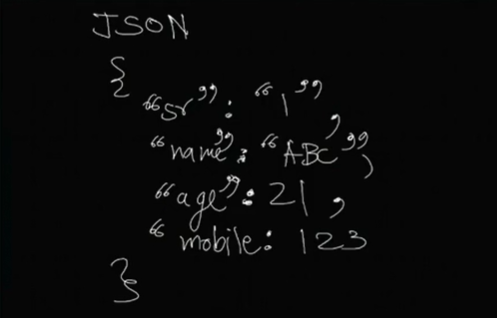 JSON
{
"sr": "1",
"name": "ABC",
"age": 21,
"mobile: 123
}